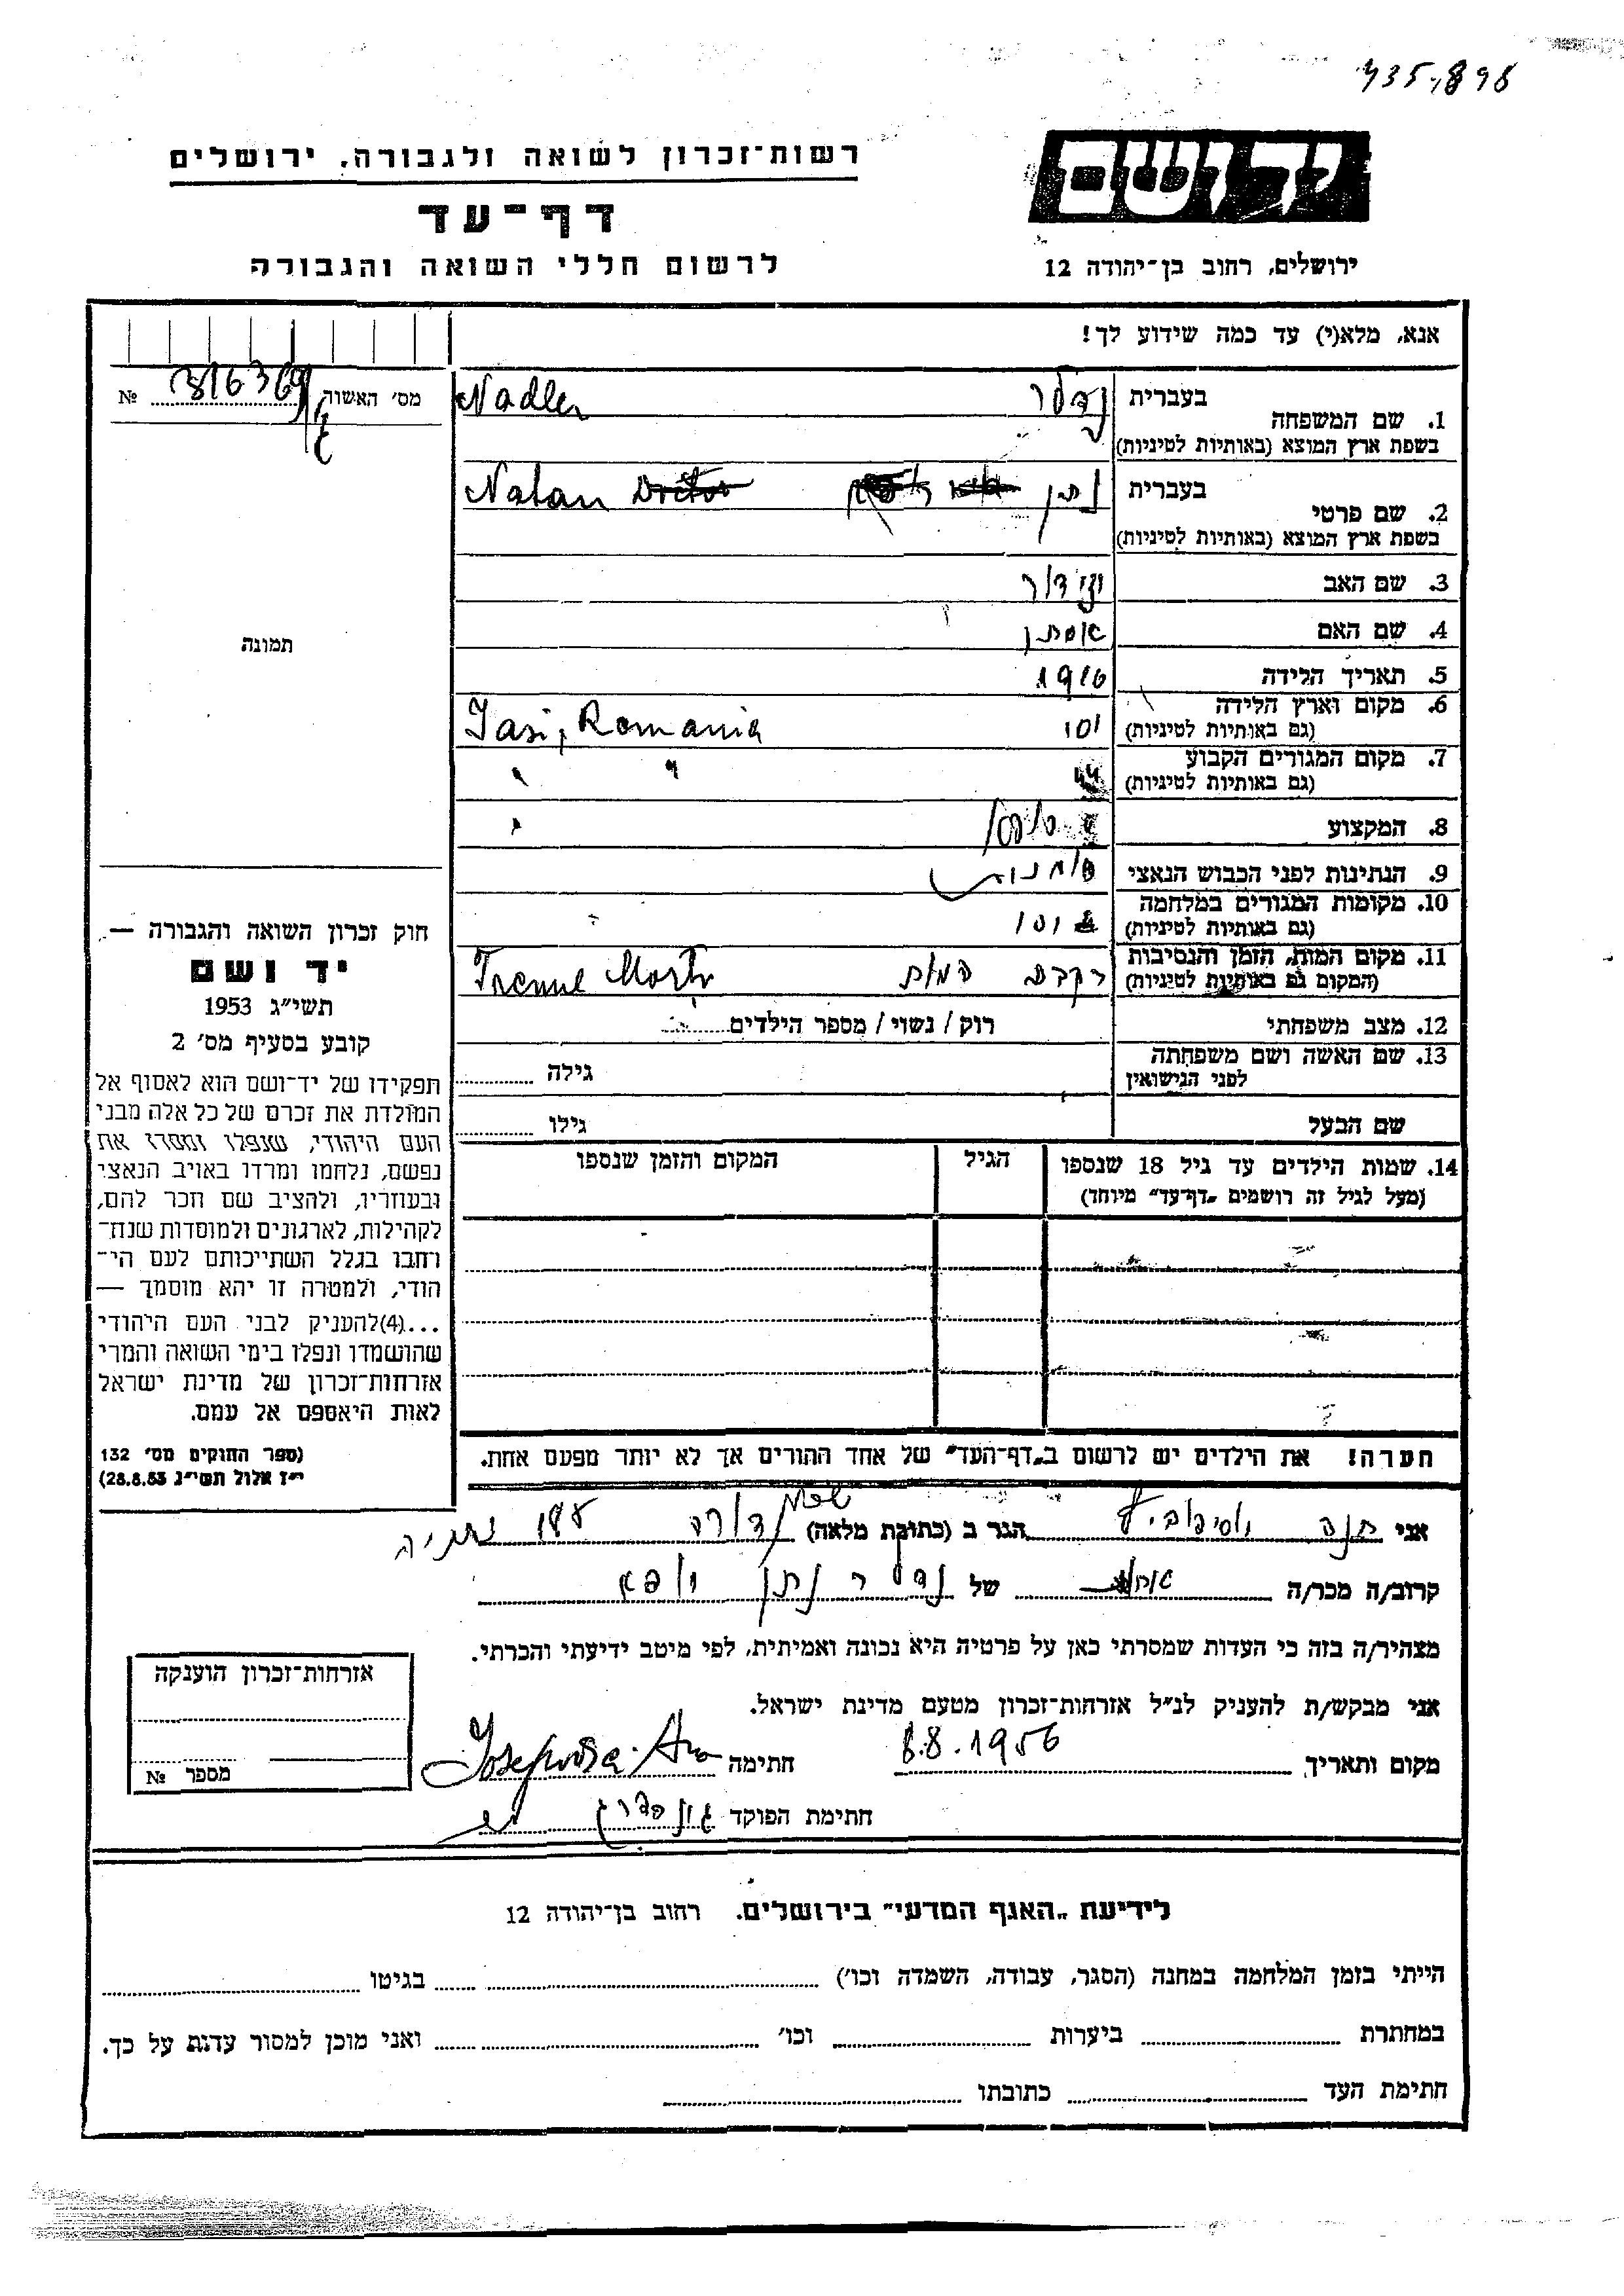 435,898
ידושם
רשות־זכרון לשואה ולגבורה, ירושלים
דף־עד
לרשום חללי השואה והגבורה
ירושלים, רחוב בן־יהודה 12
אנא, מלא(י) עד כמה שידוע לך!
מס׳ האשוה 316369 №
1. שם המשפחה
בעברית נדלר Nadler
בשפת ארץ המוצא (באותיות לטיניות)
2. שם פרטי
בעברית נתן Natan
בשפת ארץ המוצא (באותיות לטיניות)
3. שם האב
4. שם האם אסתר
5. תאריך הלידה 1916
6. מקום וארץ הלידה
(גם באותיות לטיניות) יסי Iasi, Romania
7. מקום המגורים הקבוע
(גם באותיות לטיניות) " "
8. המקצוע
9. הנתינות לפני הכבוש הנאצי רומנית
10. מקומות המגורים במלחמה
(גם באותיות לטיניות) יסי
11. מקום המות, הזמן והנסיבות
(המקום גם באותיות לטיניות) רכבת המות
12. מצב משפחתי רוק / נשוי / מספר הילדים
13. שם האשה ושם משפחתה
לפני הנישואין גילה
שם הבעל גילו
14. שמות הילדים עד גיל 18 שנספו
(מעל לגיל זה רושמים „דף־עד״ מיוחד)
הגיל
המקום והזמן שנספו
תמונה
חוק זכרון השואה והגבורה —
יד ושם
תשי״ג 1953
קובע בסעיף מס׳ 2
תפקידו של יד־ושם הוא לאסוף אל
המולדת את זכרם של כל אלה מבני
העם היהודי, שנפלו ומסרו את
נפשם, נלחמו ומרדו באויב הנאצי
ובעוזריו, ולהציב שם וזכר להם,
לקהילות, לארגונים ולמוסדות שנח־
רחבו בגלל השתייכותם לעם הי־
הודי, ולמטרה זו יהא מוסמך —
...(4)להעניק לבני העם היהודי
שהושמדו ונפלו בימי השואה והמרי
אזרחות־זכרון של מדינת ישראל
לאות היאספם אל עמם.
(ספר החוקים מס׳ 132
י״ז אלול תשי״ג 28.8.53)
הערה! את הילדים יש לרשום ב„דף־העד״ של אחד ההורים אך לא יותר מפעם אחת.
אני חנה יוסיפוביץ הגר ב (כתובת מלאה) דורה נתניה
קרוב/ה מכר/ה של נדלר נתן רופא
מצהיר/ה בזה כי העדות שמסרתי כאן על פרטיה היא נכונה ואמיתית, לפי מיטב ידיעתי והכרתי.
אני מבקש/ת להעניק לנ״ל אזרחות־זכרון מטעם מדינת ישראל.
מקום ותאריך 8.8.1956 חתימה
חתימת הפוקד
אזרחות־זכרון הוענקה
מספר №
לידיעת „האגף המדעי״ בירושלים. רחוב בן־יהודה 12
הייתי בזמן המלחמה במחנה (הסגר, עבודה, השמדה וכו׳) בגיטו
במחתרת ביערות וכו׳ ואני מוכן למסור עדות על כך.
חתימת העד כתובתו